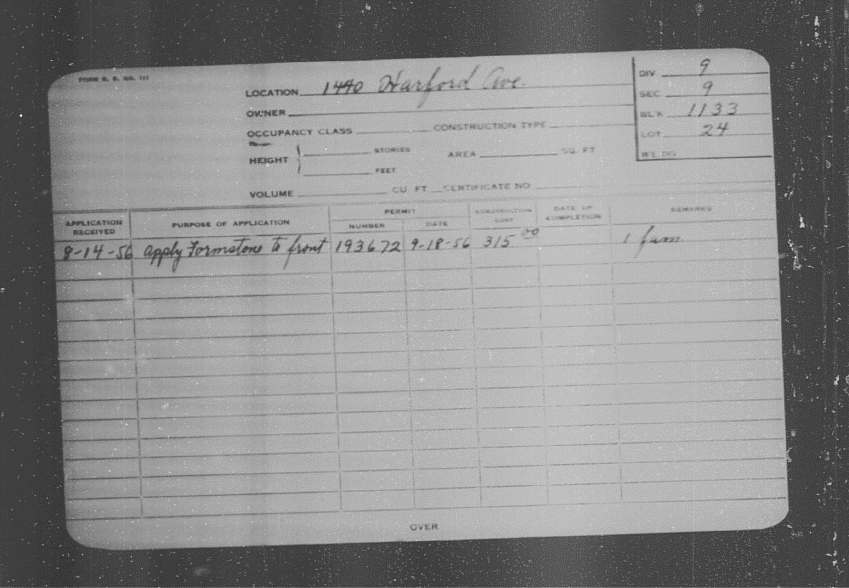 FORM B. B. NO. 111
LOCATION 1440 Harford Ave.
OWNER
OCCUPANCY CLASS CONSTRUCTION TYPE
HEIGHT STORIES AREA SQ. FT.
FEET
VOLUME CU. FT. CERTIFICATE NO
DIV 9
SEC 9
BL'K 1133
LOT 24
BLDG
APPLICATION RECEIVED PURPOSE OF APPLICATION PERMIT NUMBER DATE CONSTRUCTION COST DATE OF COMPLETION REMARKS
8-14-56 apply Formstone to front 193672 9-18-56 315 00 1 fam
OVER